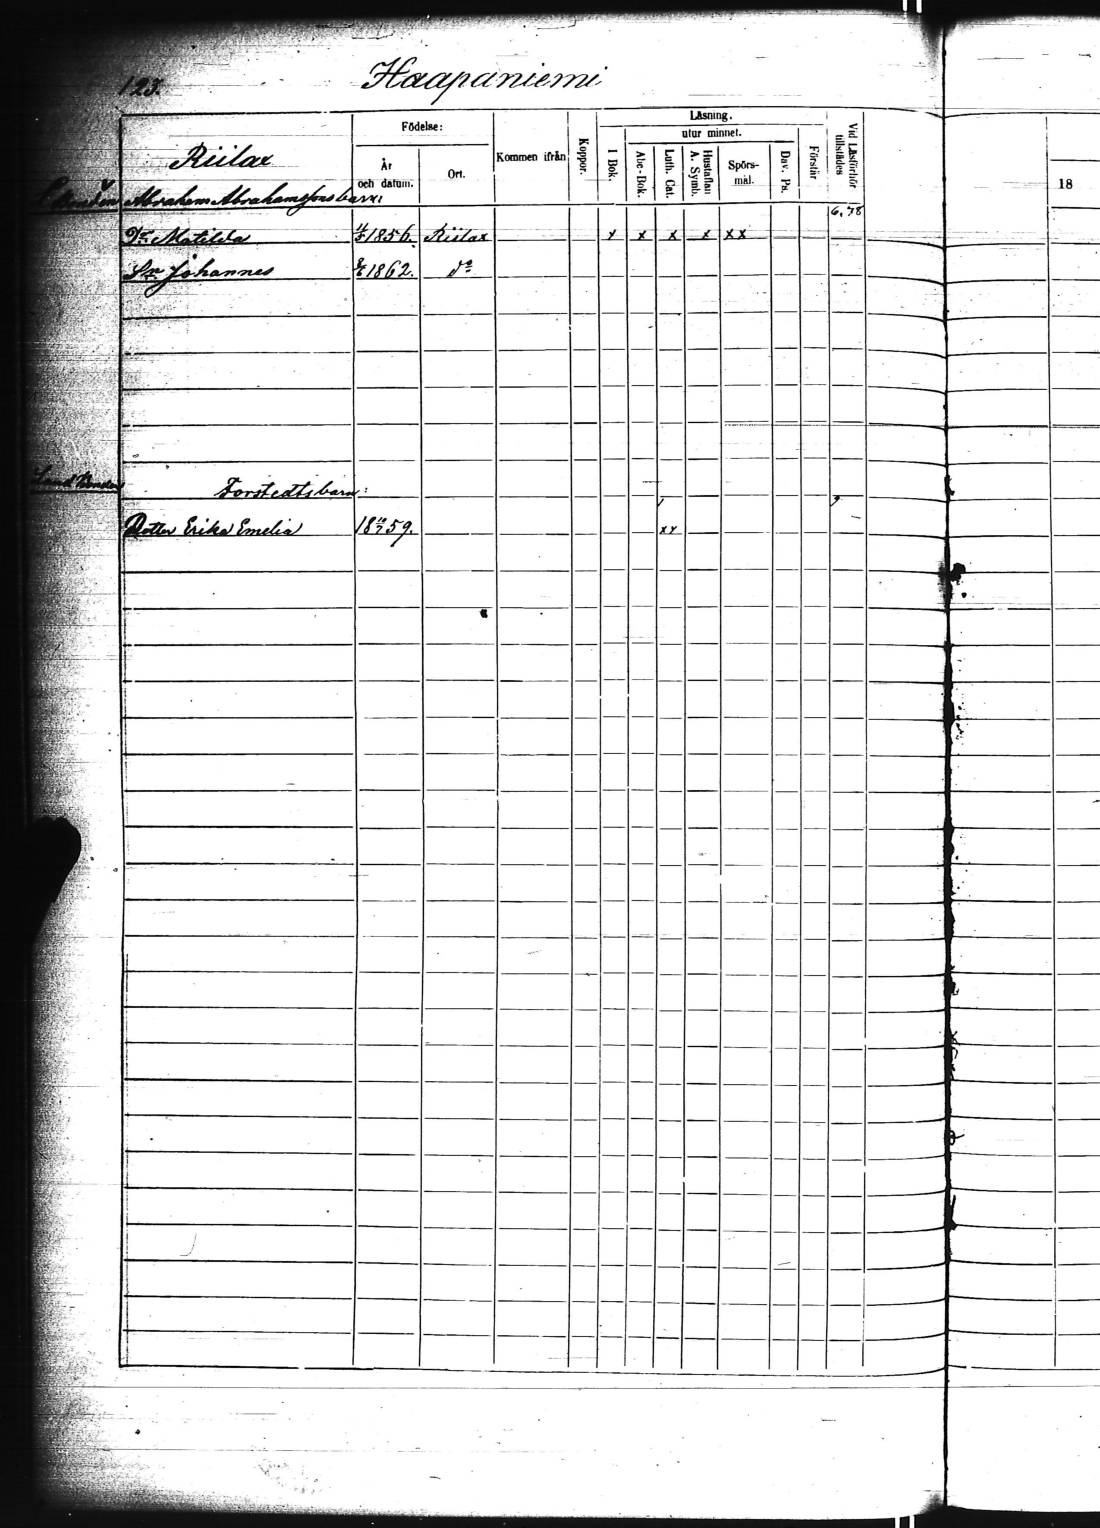 123.
Haapaniemi
Riilax
Födelse:
År och datum.
Ort.
Kommen ifrån
Koppor.
Läsning.
utur minnet.
I Bok.
Abc-Bok.
Luth. Cat.
Hustaflan A. Symb.
Spörs-mål.
Dav. Ps.
Förstår
Vid Läsförhör tillstädes
18
Abraham Abrahamssons barn:
6. 78
Dr Matilda 1856. Riilax x x x x x x
Sn Johannes 1862. do
Torstedts barn:
Dotter Erika Emelia 18 11/7 59. x x